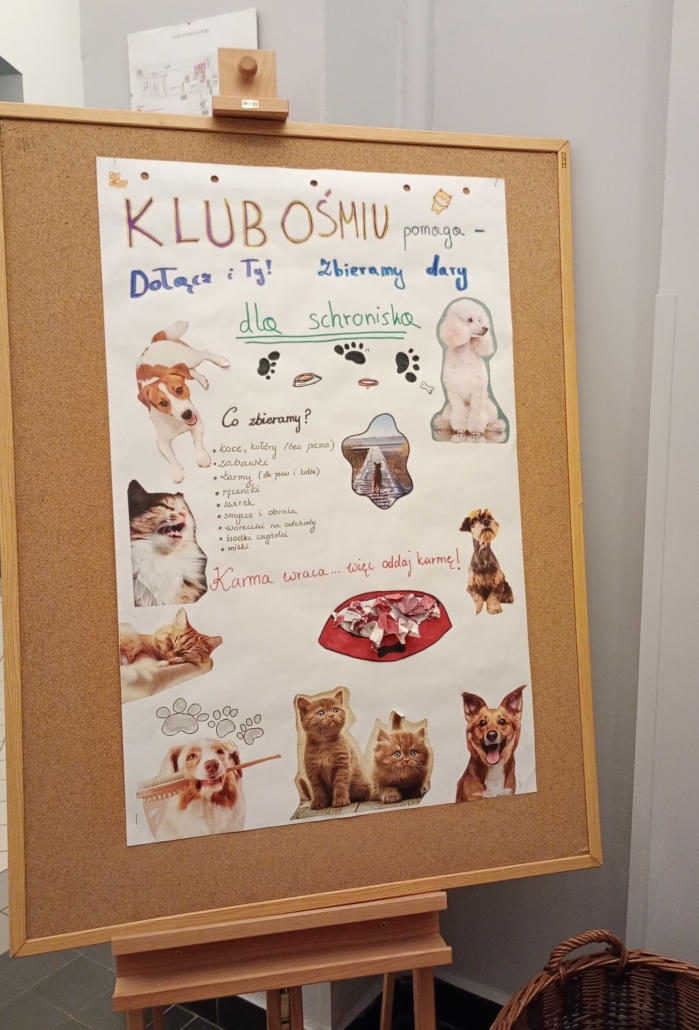 KLUB OŚMIU pomaga -
Dołącz i Ty! Zbieramy dary
dla schroniska
Co zbieramy?
• koce, kołdry (bez pierza)
• zabawki
• karmy (dla psów i kotów)
• ręczniki
• żwirek
• smycze i obroże
• woreczki na odchody
• środki czystości
• miski
Karma wraca... więc oddaj karmę!